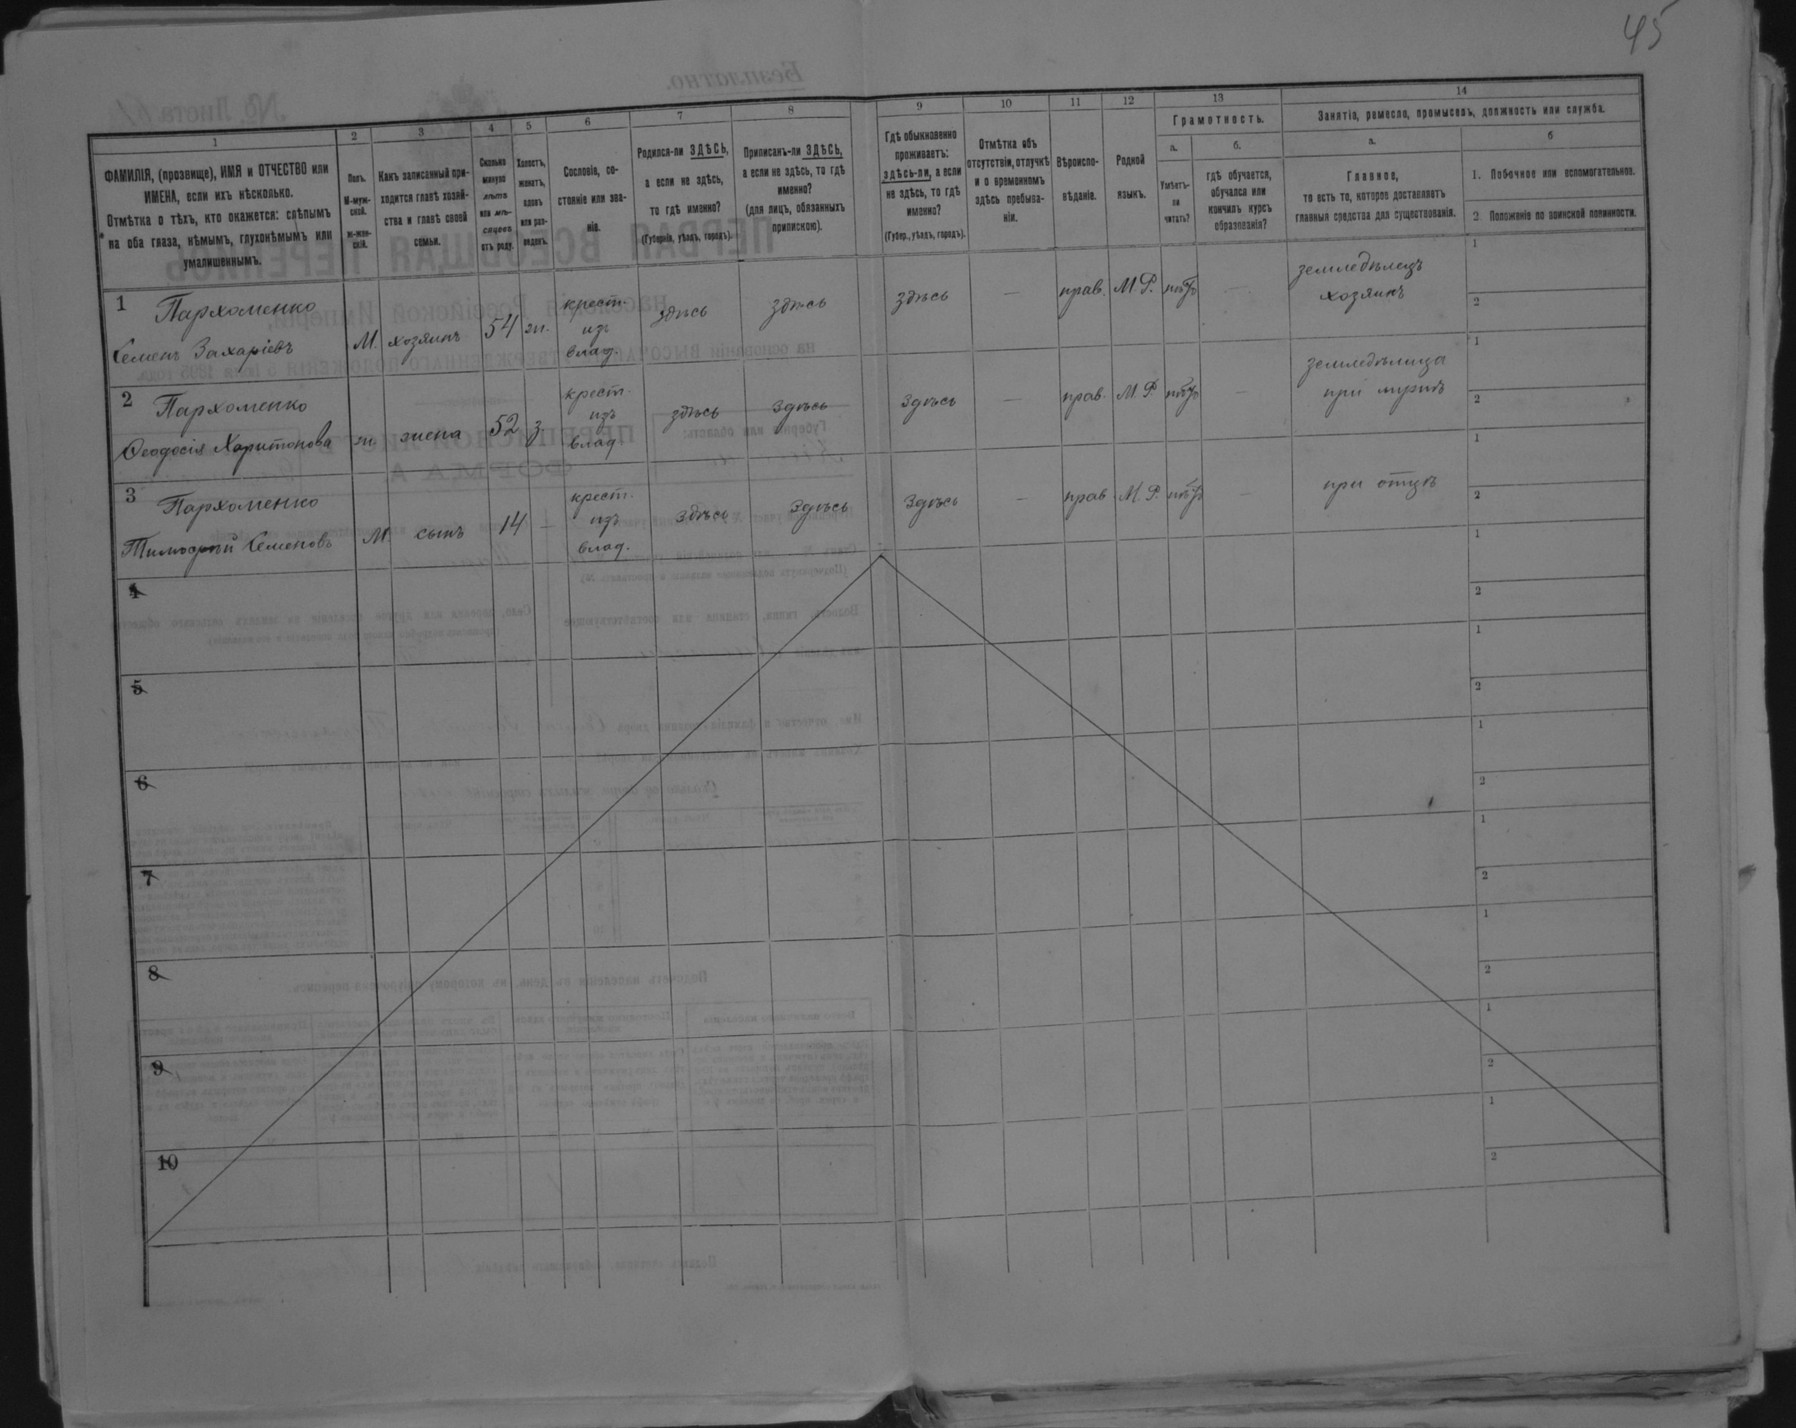 45
1
2
3
4
5
6
7
8
9
10
11
12
13
14
ФАМИЛІЯ, (прозвище), ИМЯ и ОТЧЕСТВО или
ИМЕНА, если ихъ нѣсколько.
Отмѣтка о тѣхъ, кто окажется: слѣпымъ
на оба глаза, нѣмымъ, глухонѣмымъ или
умалишеннымъ.
Полъ.
М-муж-
ской.
ж-жен-
скій.
Какъ записанный при-
ходится главѣ хозяй-
ства и главѣ своей
семьи.
Сколько
минуло
лѣтъ
или мѣ-
сяцевъ
отъ роду.
Холостъ,
женатъ,
вдовъ
или раз-
веденъ.
Сословіе, со-
стояніе или зва-
ніе.
Родился-ли ЗДѢСЬ,
а если не здѣсь,
то гдѣ именно?
(Губернія, уѣздъ, городъ).
Приписанъ-ли ЗДѢСЬ,
а если не здѣсь, то гдѣ
именно?
(для лицъ, обязанныхъ
припискою).
Гдѣ обыкновенно
проживаетъ:
здѣсь-ли, а если
не здѣсь, то гдѣ
именно?
(Губер., уѣздъ, городъ).
Отмѣтка объ
отсутствіи, отлучкѣ
и о временномъ
здѣсь пребыва-
ніи.
Вѣроиспо-
вѣданіе.
Родной
языкъ.
Грамотность.
а.
Умѣетъ-
ли
читать?
б.
гдѣ обучается,
обучался или
кончилъ курсъ
образованія?
Занятія, ремесло, промыселъ, должность или служба.
а.
Главное,
то есть то, которое доставляетъ
главныя средства для существованія.
б
1. Побочное или вспомогательное.
2. Положеніе по воинской повинности.
1 Пархоменко
Семенъ Захаріевъ
М. хозяинъ 54 ж.
крест.
изъ
влад.
здѣсь здѣсь здѣсь — прав. М.Р. нѣтъ —
земледѣлецъ
хозяинъ
1
2
2 Пархоменко
Ѳеодосія Харитонова
ж. жена 52 з.
крест.
изъ
влад
здѣсь здѣсь здѣсь — прав. М.Р. нѣтъ —
земледѣлица
при мужѣ
1
2
3 Пархоменко
Тимофей Семеновъ
М. сынъ 14 —
крест.
изъ
влад.
здѣсь здѣсь здѣсь — прав М.Р. нѣтъ —
при отцѣ
1
2
4
1
2
5
1
2
6
1
2
7
1
2
8
1
2
9
1
2
10
1
2